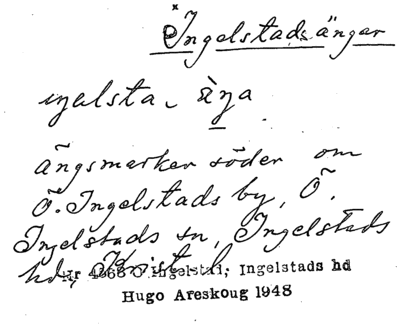 Ingelstads ängar
ängsmarker söder om
Ö. Ingelstads by, Ö.
Ingelstads sn, Ingelstads
hd, Krist. l
Nr 4668 Ö Ingelstad, Ingelstads hd
Hugo Areskoug 1948